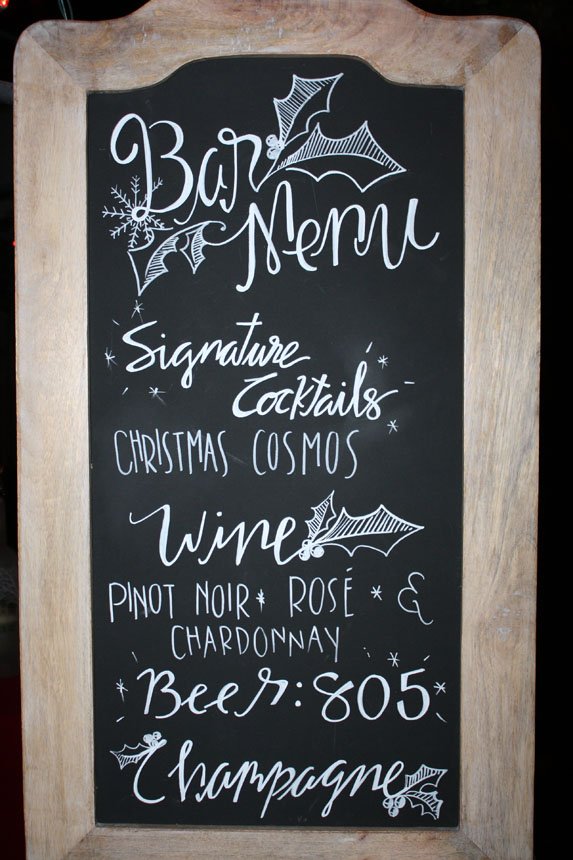 Bar
Menu
Signature
Cocktails
CHRISTMAS COSMOS
Wine
PINOT NOIR * ROSÉ * &
CHARDONNAY
Beer: 805
Champagne